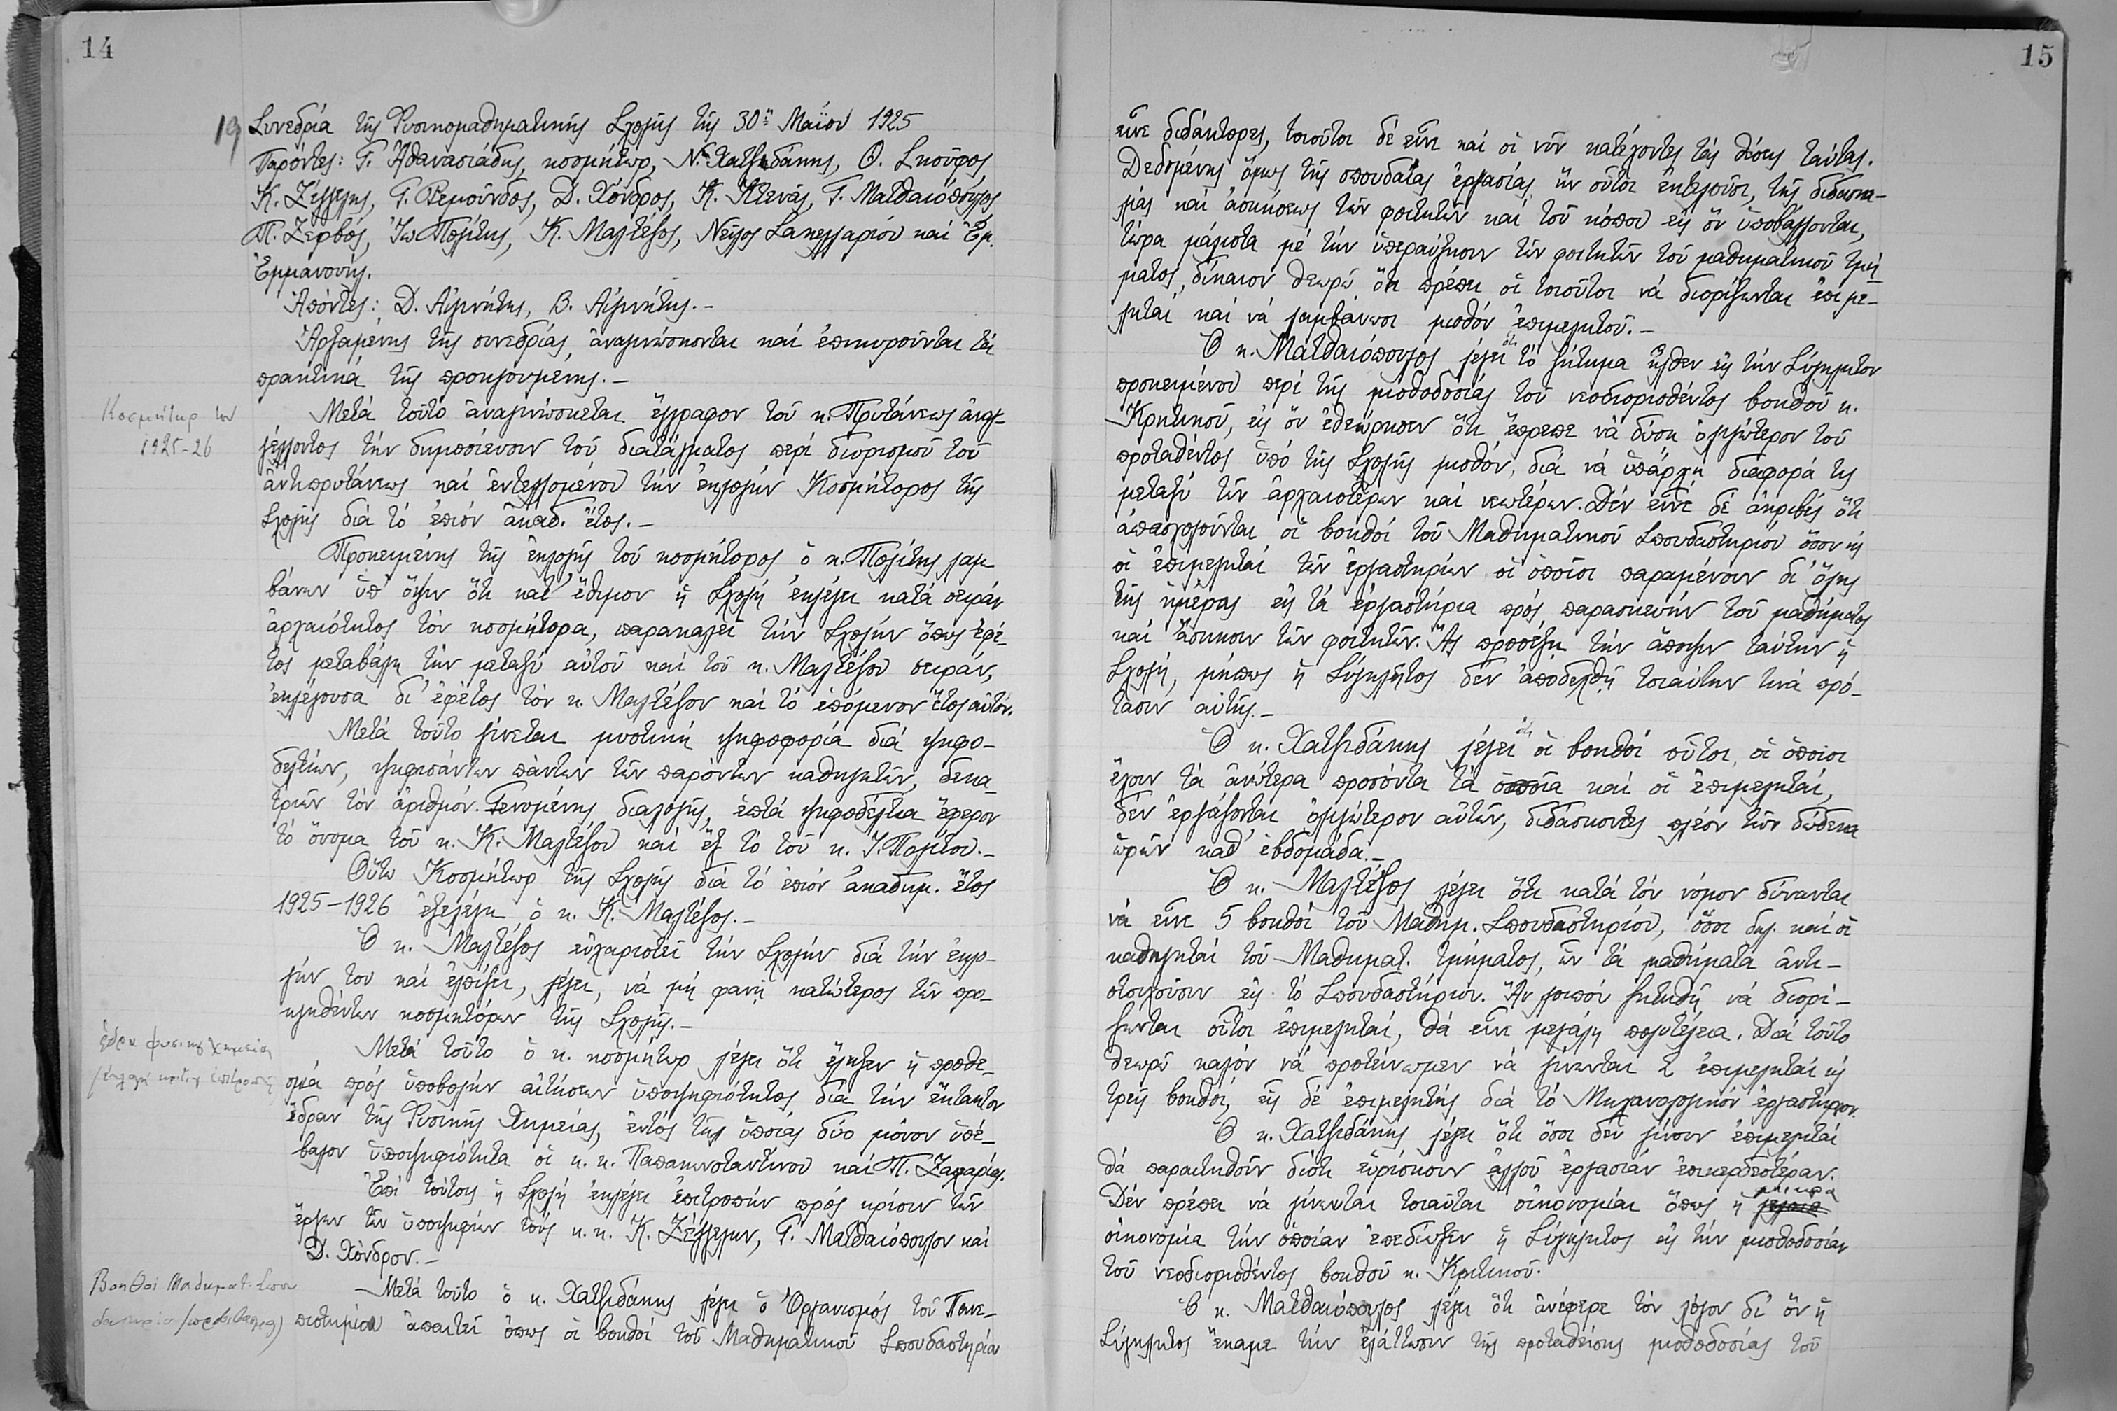 14
19
Συνεδρία τῆς Φυσικομαθηματικῆς Σχολῆς τῆς 30ῆς Μαΐου 1925
Παρόντες: Γ. Ἀθανασιάδης, κοσμήτωρ, Ν. Χατζιδάκης, Θ. Σκοῦφος,
Κ. Ζέγγελης, Γ. Ρεμοῦνδος, Δ. Χόνδρος, Κ. Κτενάς, Γ. Ματθαιόπουλος,
Π. Ζερβός, Ἰω Πολίτης, Κ. Μαλτέζος, Νεῖλος Σακελλαρίου καί Ἐμ.
Ἐμμανουήλ.
Ἀπόντες: Δ. Αἰγινήτης, Β. Αἰγινήτης.-
Ἀρξαμένης τῆς συνεδρίας, ἀναγινώσκονται καί ἐπικυροῦνται τά
πρακτικά τῆς προηγουμένης.-
Κοσμήτωρ του
1925-26
Μετά τοῦτο ἀναγινώσκεται ἔγγραφον τοῦ κ. Πρυτάνεως ἀναγ-
γέλλοντος τήν δημοσίευσιν τοῦ διατάγματος περί διορισμοῦ τοῦ
ἀντιπρυτάνεως καί ἐντελλομένου τήν ἐκλογήν Κοσμήτορος τῆς
Σχολῆς διά τό ἐπιόν ἀκαδ. ἔτος.-
Προκειμένης τῆς ἐκλογῆς τοῦ κοσμήτορος ὁ κ. Πολίτης λαμ
βάνων ὑπ' ὄψιν ὅτι κατ' ἔθιμον ἡ Σχολή ἐκλέγει κατά σειράν
ἀρχαιότητος τόν κοσμήτορα, παρακαλεῖ τήν Σχολήν ὅπως ἐφέ-
τος μεταβάλῃ τήν μεταξύ αὐτοῦ καί τοῦ κ. Μαλτέζου σειράν,
ἐκλέγουσα δι' ἐφέτος τόν κ. Μαλτέζον καί τό ἑπόμενον ἔτος αὐτόν.
Μετά τοῦτο γίνεται μυστική ψηφοφορία διά ψηφο-
δελτίων, ψηφισάντων πάντων τῶν παρόντων καθηγητῶν, δεκα
τριῶν τόν ἀριθμόν. Γενομένης διαλογῆς, ἑπτά ψηφοδέλτια ἔφερον
τό ὄνομα τοῦ κ. Κ. Μαλτέζου καί ἕξ τό τοῦ κ. Ἰ. Πολίτου.-
Οὕτω Κοσμήτωρ τῆς Σχολῆς διά τό ἐπιόν ἀκαδημ. ἔτος
1925-1926 ἐξελέγη ὁ κ. Κ. Μαλτέζος.-
Ὁ κ. Μαλτέζος εὐχαριστεῖ τήν Σχολήν διά τήν ἐκλο-
γήν του καί ἐλπίζει, λέγει, νά μή φανῇ κατώτερος τῶν προ-
κληθέντων κοσμητόρων τῆς Σχολῆς.-
ἕδρα φυσικης χημείας
/ἐκλογή κριτικ. ἐπιτροπῆς
Μετά τοῦτο ὁ κ. κοσμήτωρ λέγει ὅτι ἔληξεν ἡ προθε-
σμία πρός ὑποβολήν αἰτήσεων ὑποψηφιότητος διά τήν ἔκτακτον
ἕδραν τῆς Φυσικῆς Χημείας, ἐντός τῆς ὁποίας δύο μόνον ὑπέ-
βαλον ὑποψηφιότητα οἱ κ.κ. Παπακωνσταντίνου καί Π. Ζαχαρίας.
Ἐπί τούτοις ἡ Σχολή ἐκλέγει ἐπιτροπήν πρός κρίσιν τῶν
ἔργων τῶν ὑποψηφίων τούς κ.κ. Κ. Ζέγγελην, Γ. Ματθαιόπουλον καί
Δ. Χόνδρον.-
Βοηθοί Μαθηματ. Σπου
δαστηρίου /προβιβασμός)
Μετά τοῦτο ὁ κ. Χατζιδάκης λέγει ὁ Ὀργανισμός τοῦ Πανε-
πιστημίου ἀπαιτεῖ ὅπως οἱ βοηθοί τοῦ Μαθηματικοῦ Σπουδαστηρίου
15
εἶνε διδάκτορες, τοιοῦτοι δέ εἶνε καί οἱ νῦν κατέχοντες τάς θέσεις ταύτας.
Δεδομένης ὅμως τῆς σπουδαίας ἐργασίας ἥν οὗτοι ἐκτελοῦσι, τῆς διδασκα-
λίας καί ἀσκήσεως τῶν φοιτητῶν καί τοῦ κόπου εἰς ὅν ὑποβάλλονται,
τώρα μάλιστα μέ τήν ὑπεραύξησιν τῶν φοιτητῶν τοῦ μαθηματικοῦ τμή-
ματος, δίκαιον θεωρῶ ὅτι πρέπει οἱ τοιοῦτοι νά διορίζωνται ἐπιμε-
ληταί καί νά λαμβάνωσι μισθόν ἐπιμελητοῦ.-
Ὁ κ. Ματθαιόπουλος λέγει ὅτι τό ζήτημα ἦλθεν εἰς τήν Σύγκλητον
προκειμένου περί τῆς μισθοδοσίας τοῦ νεοδιορισθέντος βοηθοῦ κ.
Κρητικοῦ, εἰς ὅν ἐθεώρησεν ὅτι ἔπρεπε νά δώσῃ ὀλιγώτερον τοῦ
προταθέντος ὑπό τῆς Σχολῆς μισθόν, διά νά ὑπάρχῃ διαφορά τις
μεταξύ τῶν ἀρχαιοτέρων καί νεωτέρων. Δέν εἶνε δέ ἀκριβές ὅτι
ἀπασχολοῦνται οἱ βοηθοί τοῦ Μαθηματικοῦ Σπουδαστηρίου, ὅσον καί
οἱ ἐπιμεληταί τῶν ἐργαστηρίων οἱ ὁποῖοι παραμένουν δι' ὅλης
τῆς ἡμέρας εἰς τά ἐργαστήρια πρός παρασκευήν τοῦ μαθήματος
καί ἄσκησιν τῶν φοιτητῶν. Ἄς προσέξῃ τήν ἄποψιν ταύτην ἡ
Σχολή, μήπως ἡ Σύγκλητος δέν ἀποδεχθῇ τοιαύτην τινά πρό-
τασιν αὐτῆς.-
Ὁ κ. Χατζιδάκης λέγει ὅτι οἱ βοηθοί οὗτοι, οἱ ὁποῖοι
ἔχουν τά ἀνώτερα προσόντα τά ὁποῖα καί οἱ ἐπιμεληταί,
δέν ἐργάζονται ὀλιγώτερον αὐτῶν, διδάσκοντες πλέον τῶν δώδεκα
ὡρῶν καθ' ἑβδομάδα.-
Ὁ κ. Μαλτέζος λέγει ὅτι κατά τόν νόμον δύνανται
νά εἶνε 5 βοηθοί τοῦ Μαθημ. Σπουδαστηρίου, ὅσοι δηλ. καί οἱ
καθηγηταί τοῦ Μαθηματ. τμήματος, ὧν τά μαθήματα ἀντι-
στοιχοῦσιν εἰς τό Σπουδαστήριον. Ἄν λοιπόν ζητηθῇ νά διορί-
ζωνται οὗτοι ἐπιμεληταί, θά εἶνε μεγάλη πολυτέλεια. Διά τοῦτο
θεωρῶ καλόν νά προτείνωμεν νά γίνωνται 2 ἐπιμεληταί καί
τρεῖς βοηθοί, εἷς δέ ἐπιμελητής διά τό Μηχανολογικόν ἐργαστήριον.
Ὁ κ. Χατζιδάκης λέγει ὅτι ὅσοι δέν γίνουν ἐπιμεληταί
θά παραιτηθοῦν διότι εὑρίσκουν ἀλλοῦ ἐργασίαν ἐπικερδεστέραν.
Δέν πρέπει νά γίνωνται τοιαῦται οἰκονομίαι ὅπως ἡ μικρά
οἰκονομία τήν ὁποίαν ἐπεδίωξεν ἡ Σύγκλητος εἰς τήν μισθοδοσίαν
τοῦ νεοδιορισθέντος βοηθοῦ κ. Κρητικοῦ.
Ὁ κ. Ματθαιόπουλος λέγει ὅτι ἀνέφερε τόν λόγον δι' ὅν ἡ
Σύγκλητος ἔκαμε τήν ἐλάττωσιν τῆς προταθείσης μισθοδοσίας τοῦ